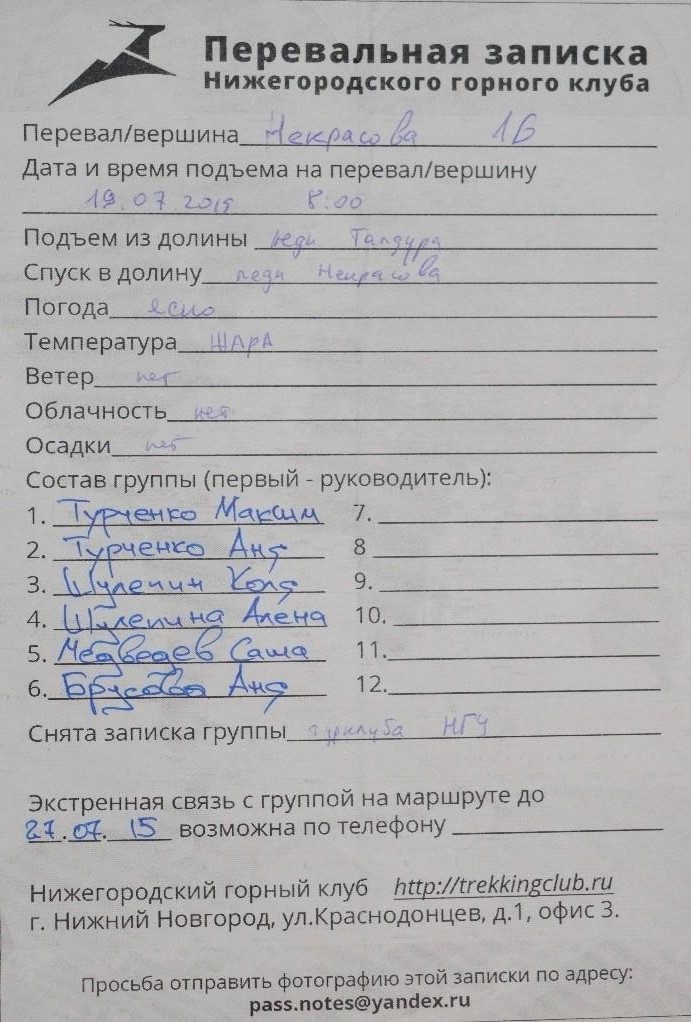 Перевальная записка
Нижегородского горного клуба
Перевал/вершина Некрасова 1Б
Дата и время подъема на перевал/вершину
19.07 2015 8:00
Подъем из долины ледн Талдура
Спуск в долину ледн Некрасова
Погода ясно
Температура ЖАРА
Ветер нет
Облачность нет
Осадки нет
Состав группы (первый - руководитель):
1. Турченко Максим 7.
2. Турченко Аня 8
3. Шулепин Коля 9.
4. Шулепина Алена 10.
5. Медведев Саша 11.
6. Брусова Аня 12.
Снята записка группы турклуба НГУ
Экстренная связь с группой на маршруте до
27.07. 15 возможна по телефону
Нижегородский горный клуб http://trekkingclub.ru
г. Нижний Новгород, ул.Краснодонцев, д.1, офис 3.
Просьба отправить фотографию этой записки по адресу:
pass.notes@yandex.ru